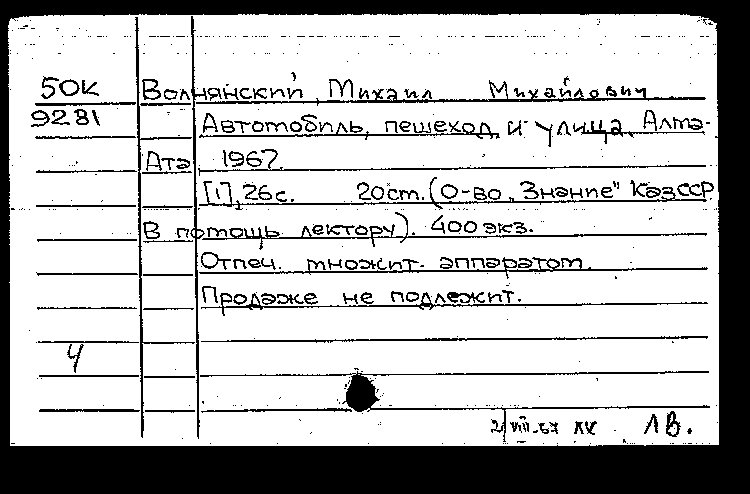 50К Волнянский, Михаил Михайлович
9281 Автомобиль, пешеход и улица. Алма-
Ата 1967.
[1], 26 с. 20 ст. (О-во „Знание" КазССР
В помощь лектору). 400 экз.
Отпеч. множит. аппаратом.
Продаже не подлежит.
4
2/VIII-67 1 в.